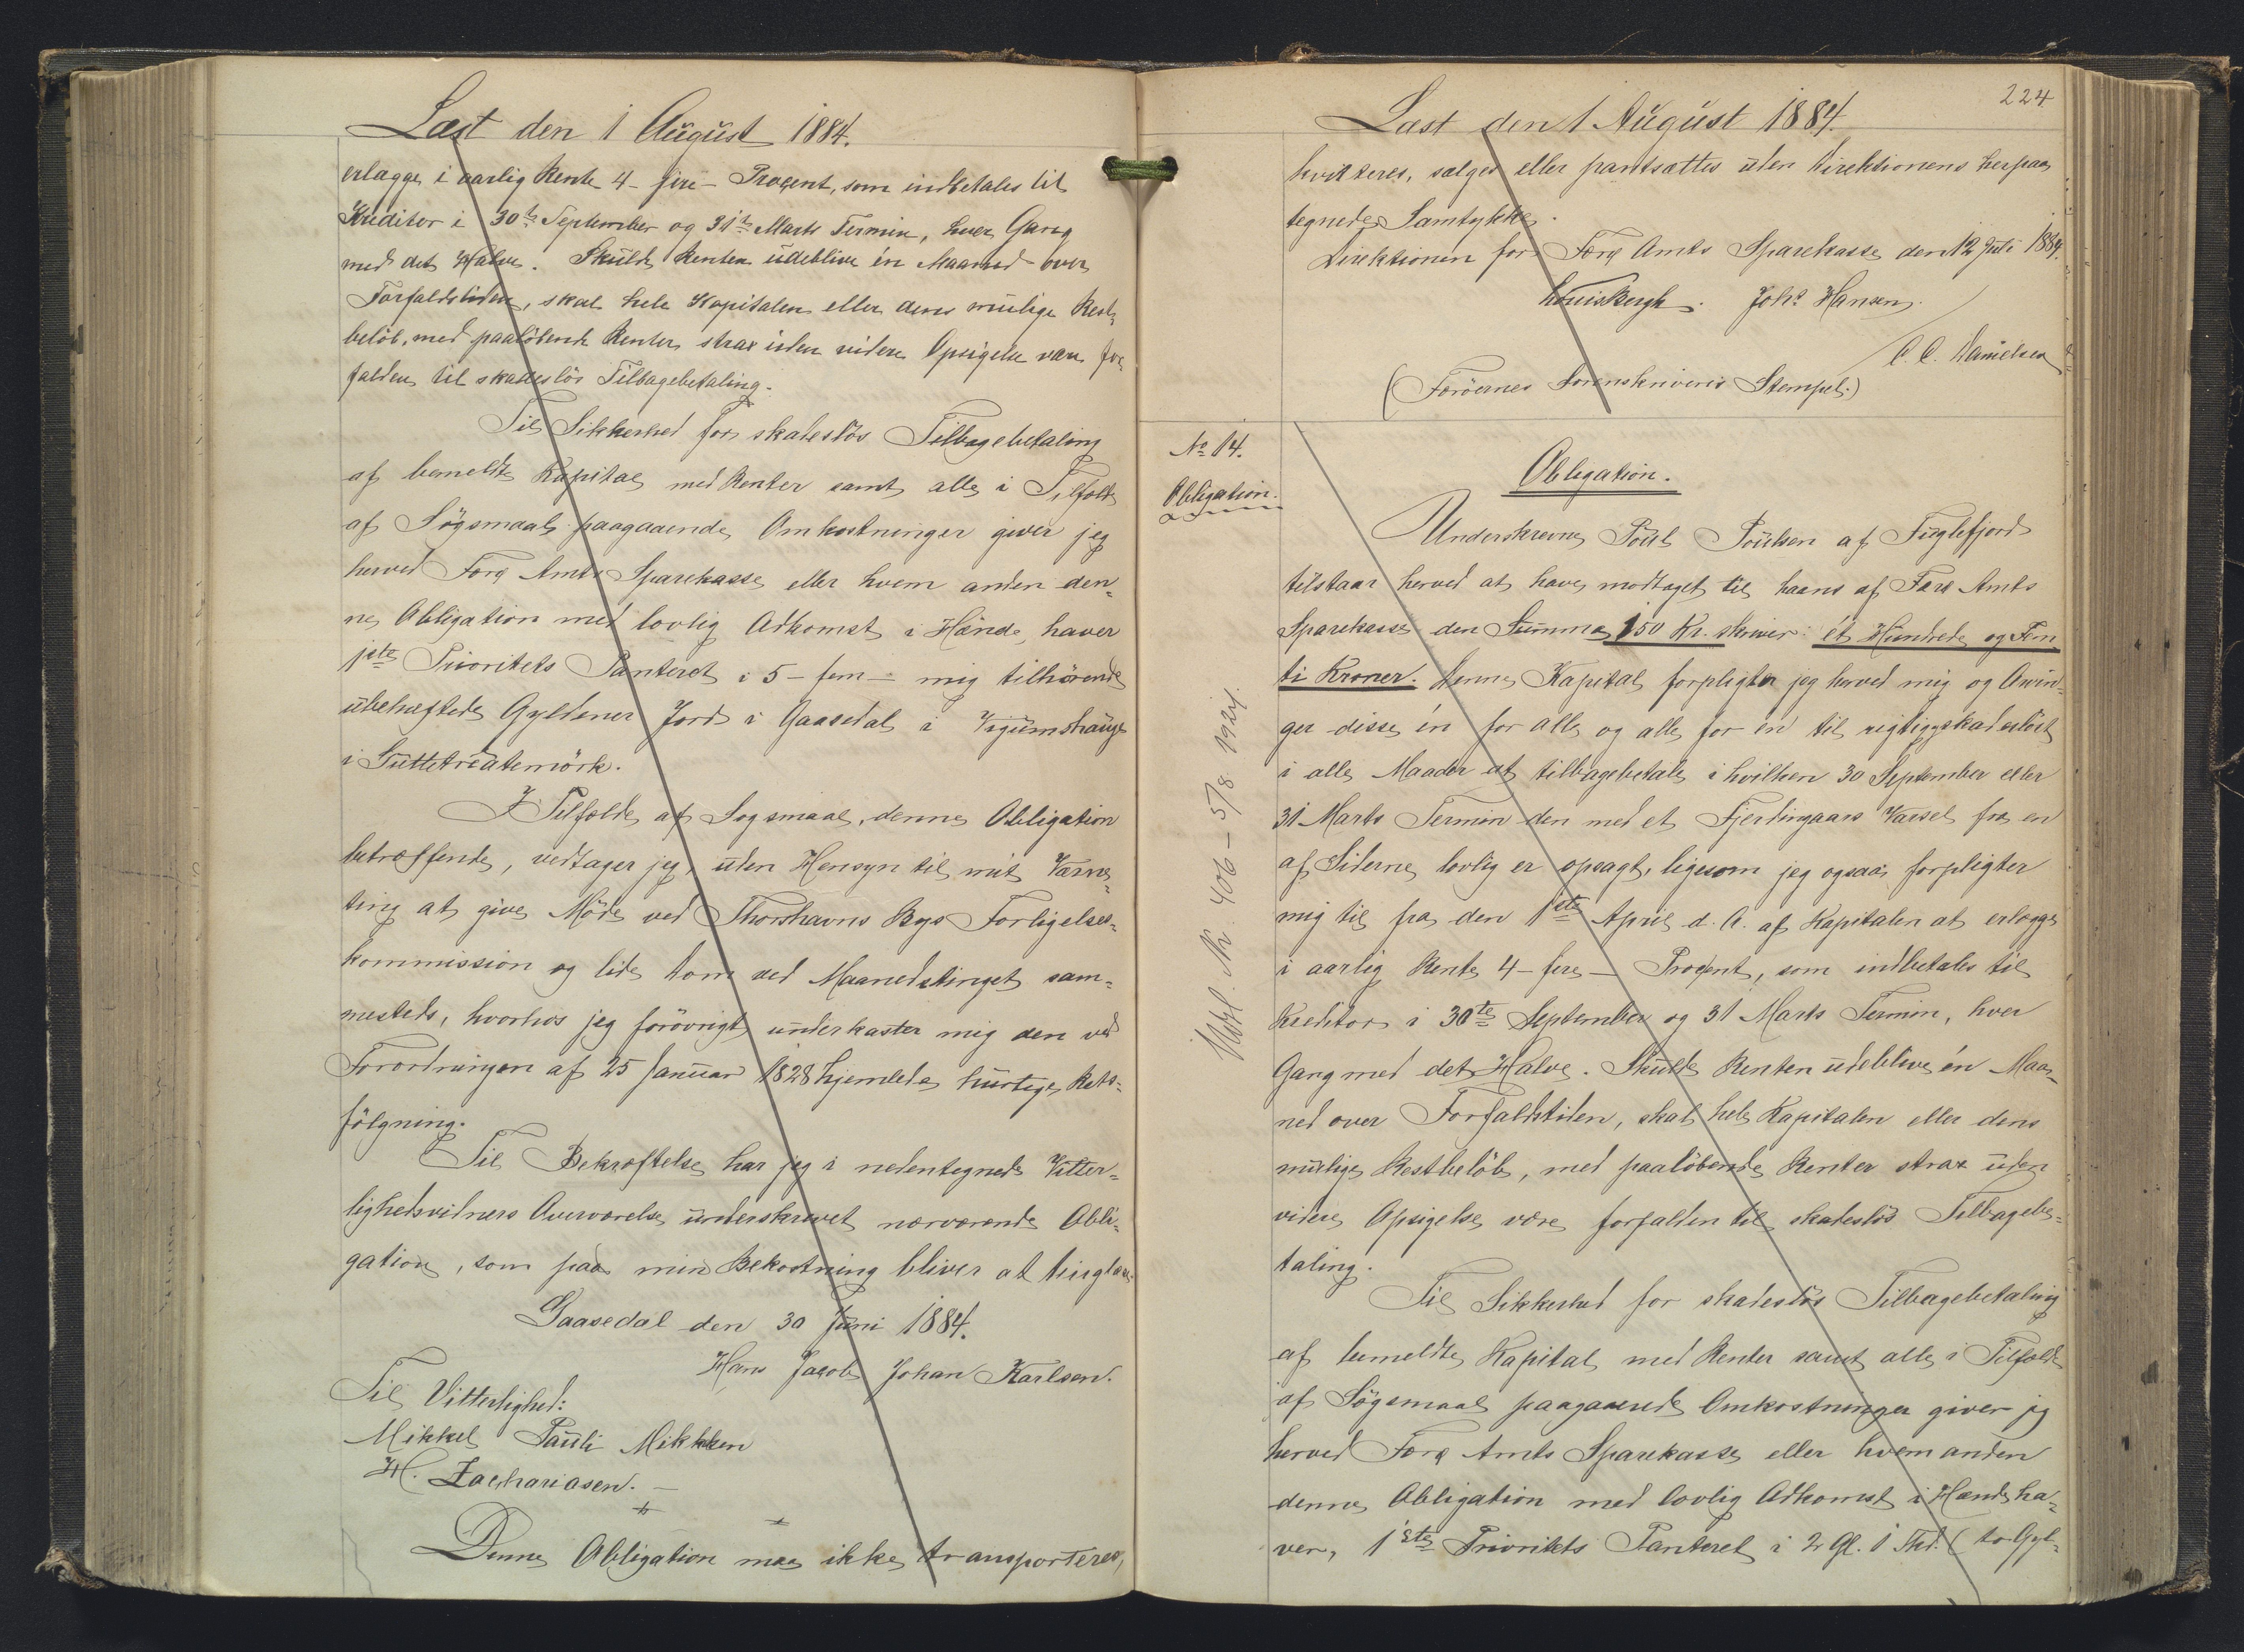 Læst den 1 August 1884.
erlægge i aarlig Rente 4 - fire - Procent, som indbetales til
Kreditor i 30te September og 31te Marts Termin, hver Gang
med det Halve. Skulde Renten udeblive én Maaned over
Forfaldstiden, skal hele Kapitalen eller dens mulige Rest-
beløb, med paaløbende Renter strax uden videre Opsigelse være for-
falden til skadesløs Tilbagebetaling.
Til Sikkerhed for skadesløs Tilbagebetaling
af bemeldte Kapital med Renter samt alle i Tilfælde
af Søgsmaal paagaaende Omkostninger giver jeg
herved Færø Amts Sparekasse eller hvem anden den-
ne Obligation med lovlig Adkomst i Hænde haver
1ste Prioritets Panteret i 5 - fem - mig tilhørende
ubehæftede Gylden Jord i Gaasedal i
i
I Tilfælde af Søgsmaal, denne Obligation
betræffende, vedtager jeg, uden Hensyn til mit Værne-
ting at give Møde ved Thorshavns Bys Forligelses-
kommission og lide Dom ved Maanedstinget sam-
mesteds, hvorhos jeg forøvrigt underkaster mig den ved
Forordningen af 25 Januar 1828 hjemlede hurtige Rets-
følgning.
Til Bekræftelse har jeg i nedentegnede Vitter-
lighedsvidners Overværelse underskrevet nærværende Obli-
gation, som paa min Bekostning bliver at tinglæse.
Gaasedal den 30 Juni 1884.
Hans Jacob Johan Karlsen.
Til Vitterlighed:
Mikkel Pauli Mikkelsen
H. Zachariasen.
Denne Obligation maa ikke transporteres,
224
Læst den 1 August 1884.
kvitteres, sælges eller pantsættes uden Direktionens herpaa
tegnede Samtykke.
Direktionen for Færø Amts Sparekasse den 12 Juli 1884.
Louis Bergh. Johs Hansen.
C. C. Danielsen
(Færøernes Sorenskriveris Stempel.)
No 14.
Obligation.
Obligation.
Underskrevne Poul Poulsen af Fuglefjord
tilstaar herved at have modtaget til Laans af Færø Amts
Sparekasse den Summa 150 Kr. skriver: ét Hundrede og Fem-
ti Kroner. Denne Kapital forpligter jeg herved mig og Arvin-
ger disse én for alle og alle for én til rigtig skadesløst
i alle Maader at tilbagebetale i hvilken 30 September eller
31 Marts Termin den med et Fjerdingaars Varsel fra en
af Siderne lovlig er opsagt, ligesom jeg ogsaa forpligter
mig til fra den 1ste April d. A. af Kapitalen at erlægge
i aarlig Rente 4 - fire - Procent, som indbetales til
Kreditor i 30te September og 31 Marts Termin, hver
Gang med det Halve. Skulde Renten udeblive én Maa-
ned over Forfaldstiden, skal hele Kapitalen eller dens
mulige Restbeløb, med paaløbende Renter strax uden
videre Opsigelse være forfalden til skadesløs Tilbagebe-
taling.
Til Sikkerhed for skadesløs Tilbagebetaling
af bemeldte Kapital med Renter samt alle i Tilfælde
af Søgsmaal paagaaende Omkostninger giver jeg
herved Færø Amts Sparekasse eller hvem anden
denne Obligation med lovlig Adkomst i Hænde ha-
ver, 1ste Prioritets Panteret i 2 Gl. 1 Skd. (to Gyl-
Udsl. Nr. 406 - 5/8 1924.